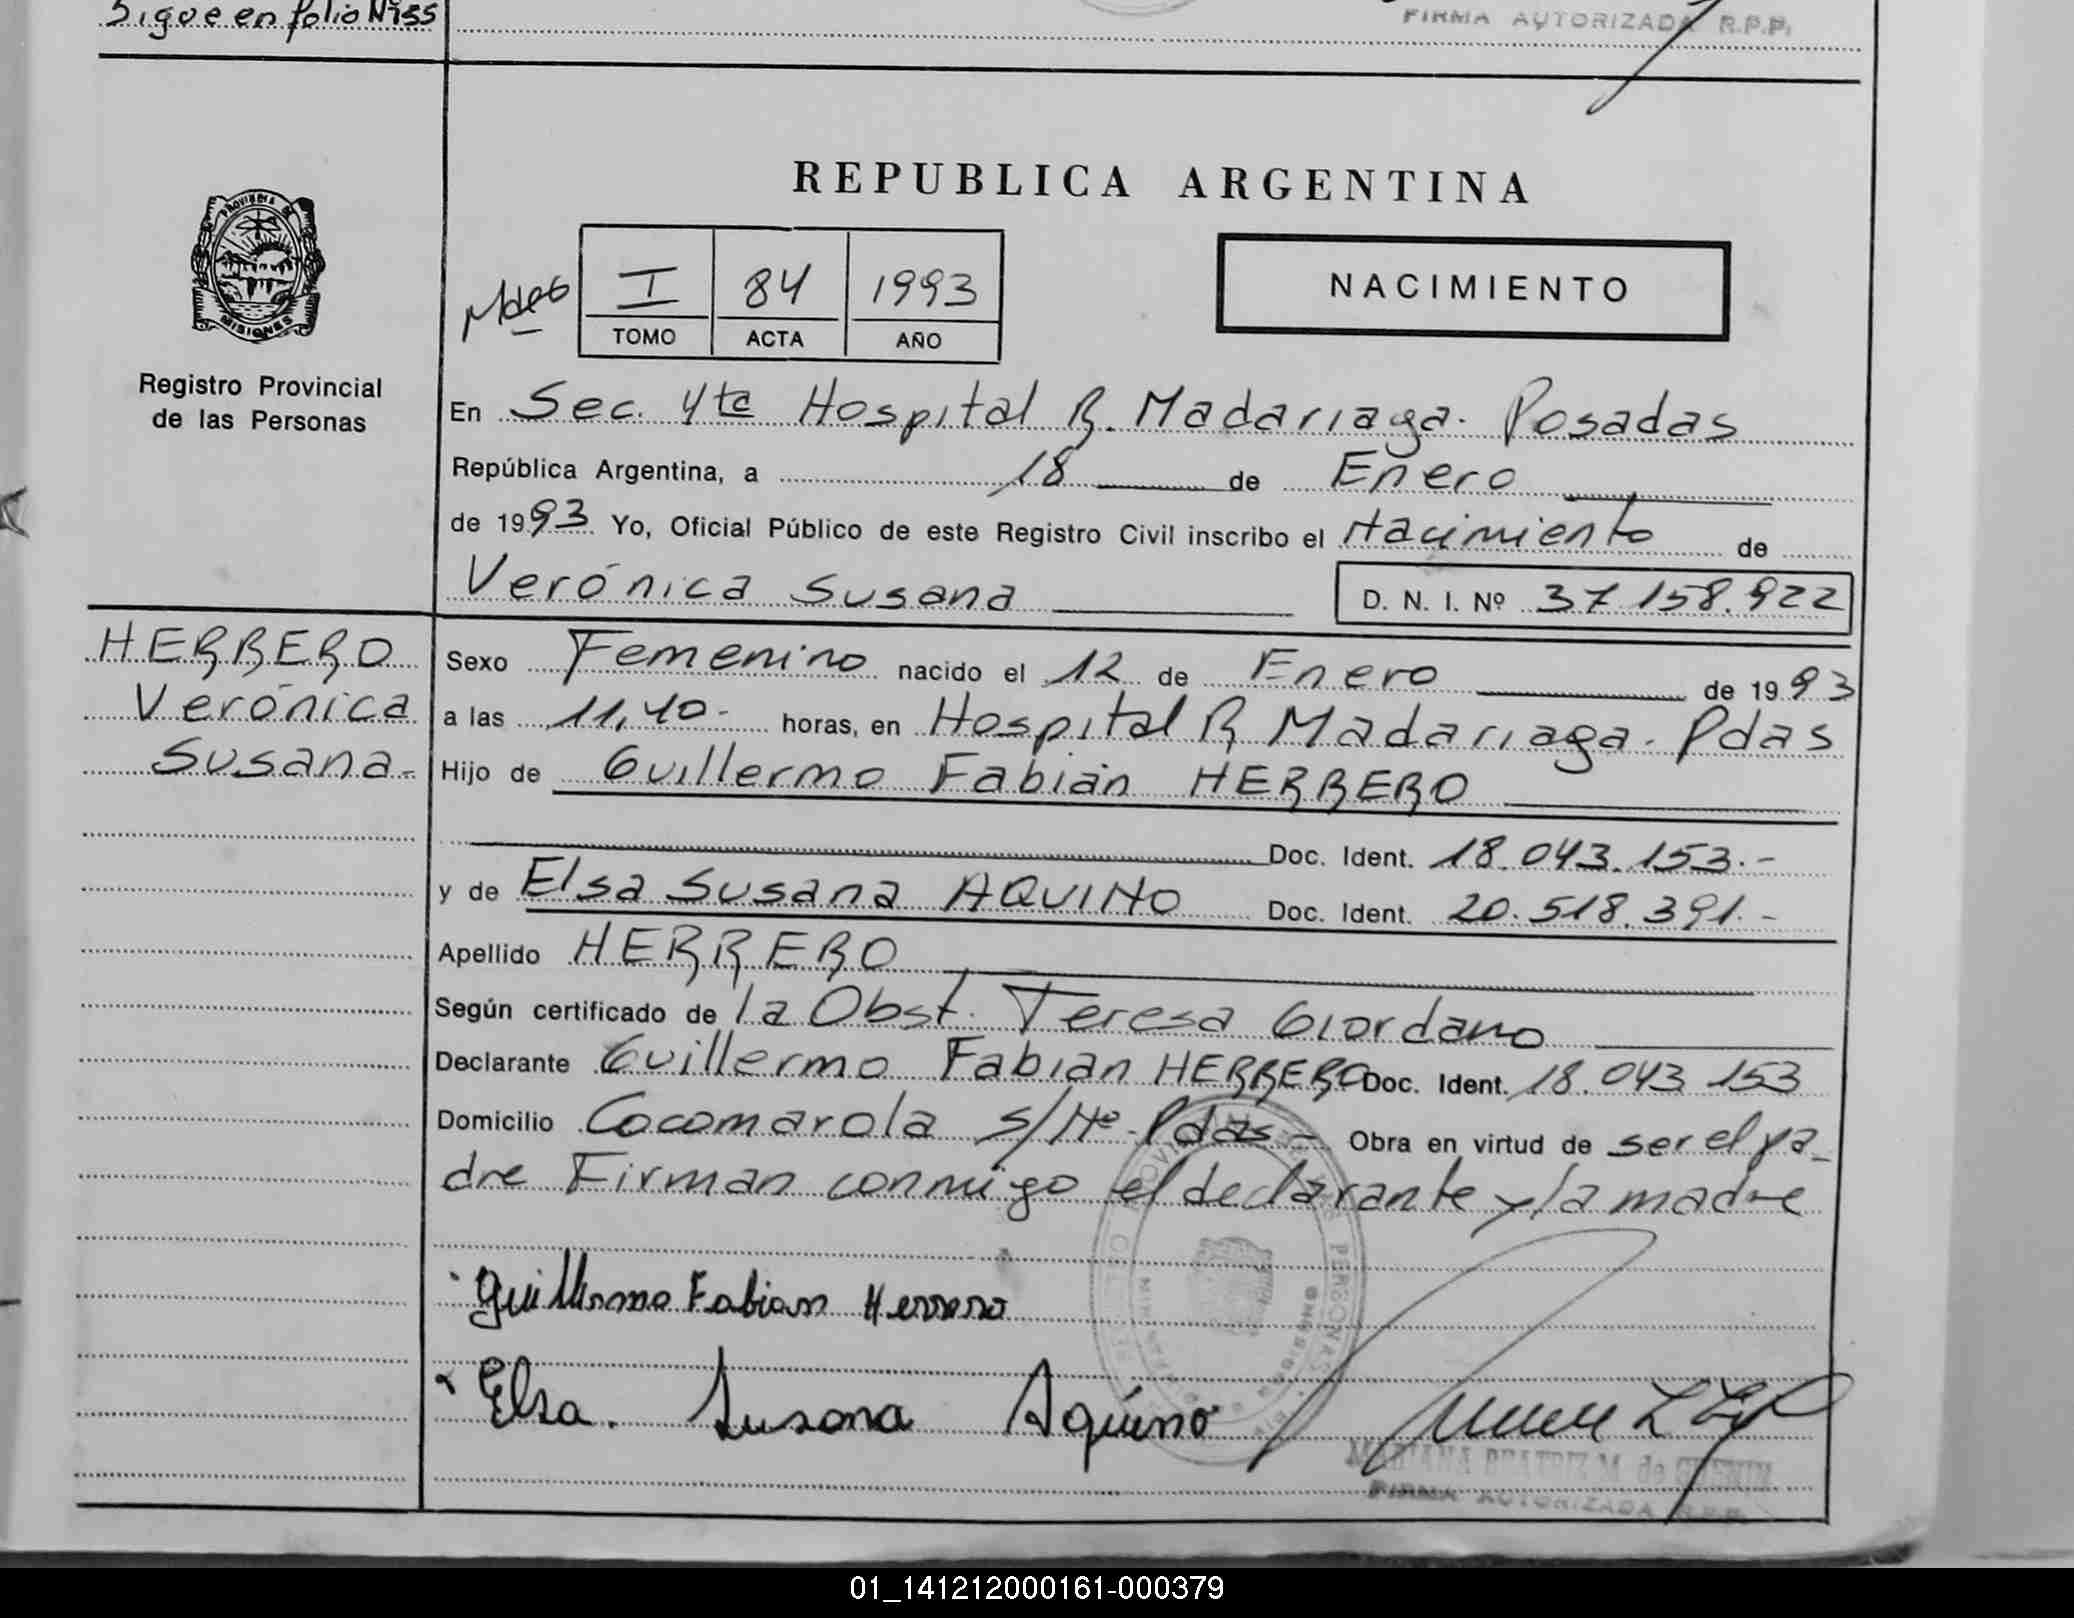 Sigue en folio Nº55
FIRMA AUTORIZADA R.P.P.
REPUBLICA ARGENTINA
PROVINCIA DE
MISIONES
Registro Provincial
de las Personas
I 84 1993
TOMO ACTA AÑO
NACIMIENTO
En Sec. 4ta Hospital R. Madariaga. Posadas
República Argentina, a 18 de Enero
de 1993 Yo, Oficial Público de este Registro Civil inscribo el Nacimiento de
Verónica Susana D. N. I. Nº 37.158.922
HERRERO
Verónica
Susana.-
Sexo Femenino nacido el 12 de Enero de 1993
a las 11,40.- horas, en Hospital R Madariaga. Pdas
Hijo de Guillermo Fabián HERRERO
Doc. Ident. 18.043.153.-
y de Elsa Susana AQUINO Doc. Ident. 20.518.391.-
Apellido HERRERO
Según certificado de la Obst. Teresa Giordano
Declarante Guillermo Fabian HERRERO Doc. Ident. 18.043.153
Domicilio Cocomarola s/Nº-Pdas- Obra en virtud de ser el pa-
dre Firman conmigo el declarante y la madre
Guillermo Fabian Herrero
Elsa. Susana Aquino
MARIANA BEATRIZ M. de
FIRMA AUTORIZADA R.P.P.
01_141212000161-000379